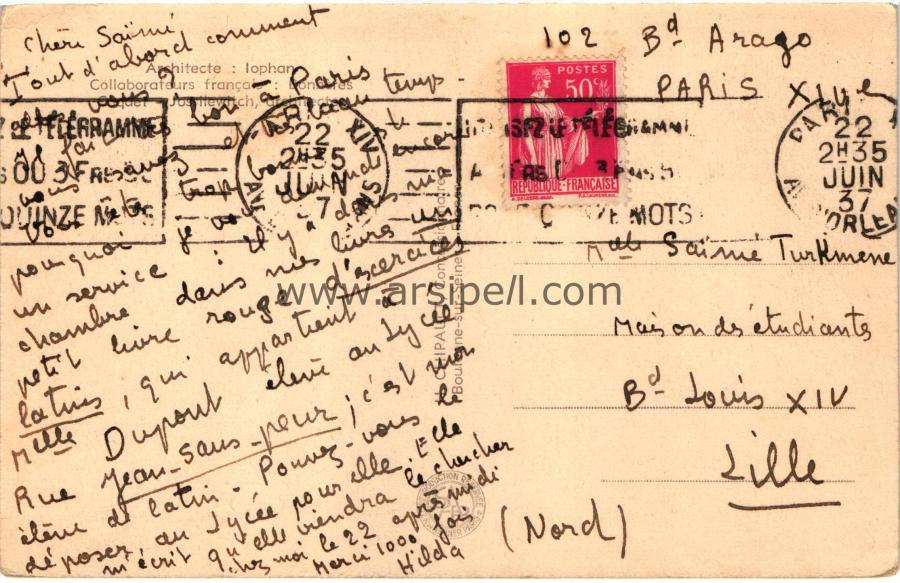 102 Bd Arago
PARIS XIVe
Chère Saïmé
Tout d'abord comment
allez vous ?
à Paris
temps -
vous
trop
je vous demande encore
pourquoi
un service : il y a dans ma
chambre dans mes livres un
petit livre rouge d'exercices
latins, qui appartient à
Melle Dupont élève au Lycée
Rue Jean-sans-peur ; c'est mon
élève de latin - Pouvez-vous le
déposer au Lycée pour elle. Elle
m'écrit qu'elle viendra le chercher
chez moi le 22 après midi
Merci 1000 fois
Hilda
Architecte : Iophan
Collaborateurs français :
POSTES
50c
RÉPUBLIQUE-FRANÇAISE
TÉLÉGRAMME
OU 3F
QUINZE MOTS
PARIS XIV
22
2H35
JUIN
37
PARIS
22
2H35
JUIN
37
Melle Saïmé Turkmene
Maison des étudiantes
Bd Louis XIV
Lille
(Nord)
Boulogne-sur-Seine
www.arsipell.com